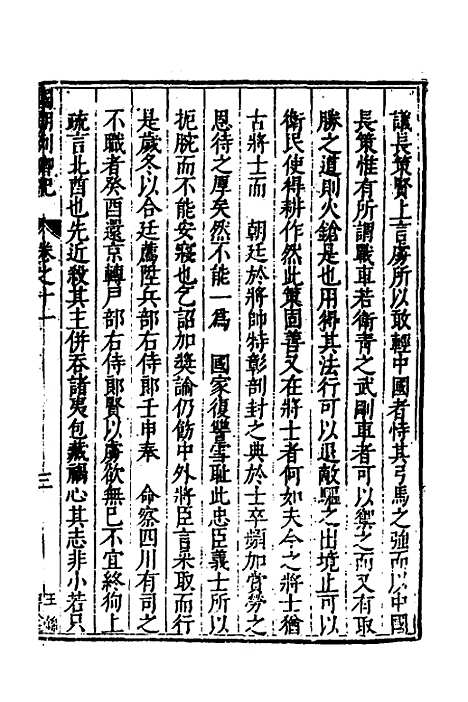 議長策賢上言虜所以敢輕中國者恃其弓馬之強而以中國
長策惟有所謂戰車若衛青之武剛車者可以禦之而又有取
勝之道則火鎗是也用得其法行可以退敵驅之出境止可以
衛民使得耕作然此策固善又在將士者何如夫今之將士猶
古將士而 朝廷於將帥特彰剖封之典於士卒頻加賞勞之
恩待之厚矣然不能一為 國家復讐雪耻此忠臣義士所以
扼腕而不能安寢也乞詔加獎諭仍飭中外將臣言采取而行
是歲冬以合廷薦陞兵部右侍郎壬申奉 命察四川有司之
不職者癸酉還京轉戶部右侍郎賢以虜欲無已不宜終狥上
疏言北酋也先近殺其主併吞諸夷包藏禍心其志非小若只
國朝列卿紀 卷之十一 三